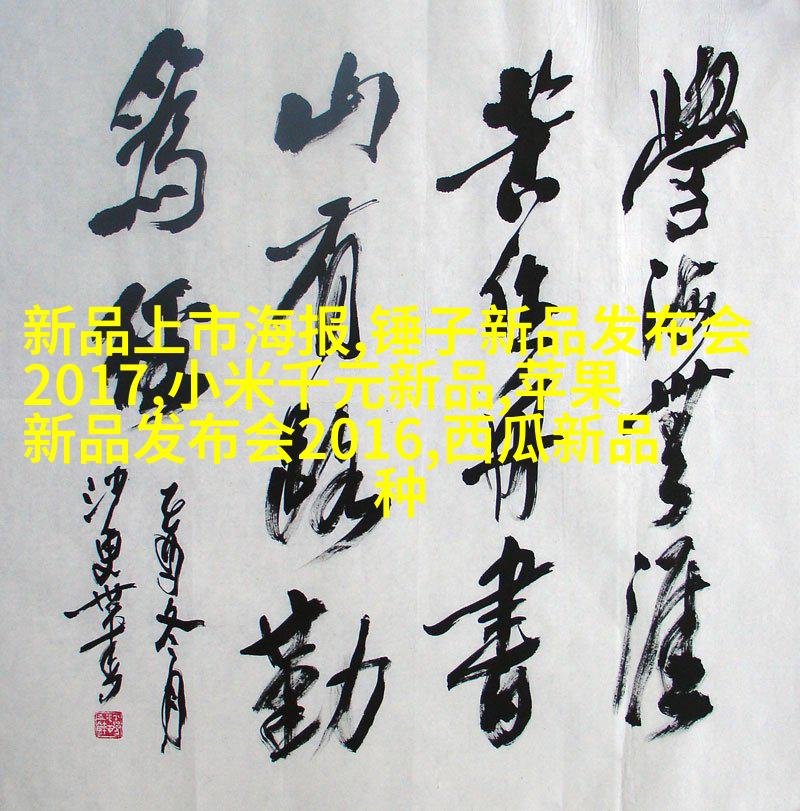 學海無涯
苦作舟書
山有路勤
為徑
乙酉冬月
新品上市海报,锤子新品发布会
2017,小米千元新品,苹果
新品发布会2016,西瓜新品
种